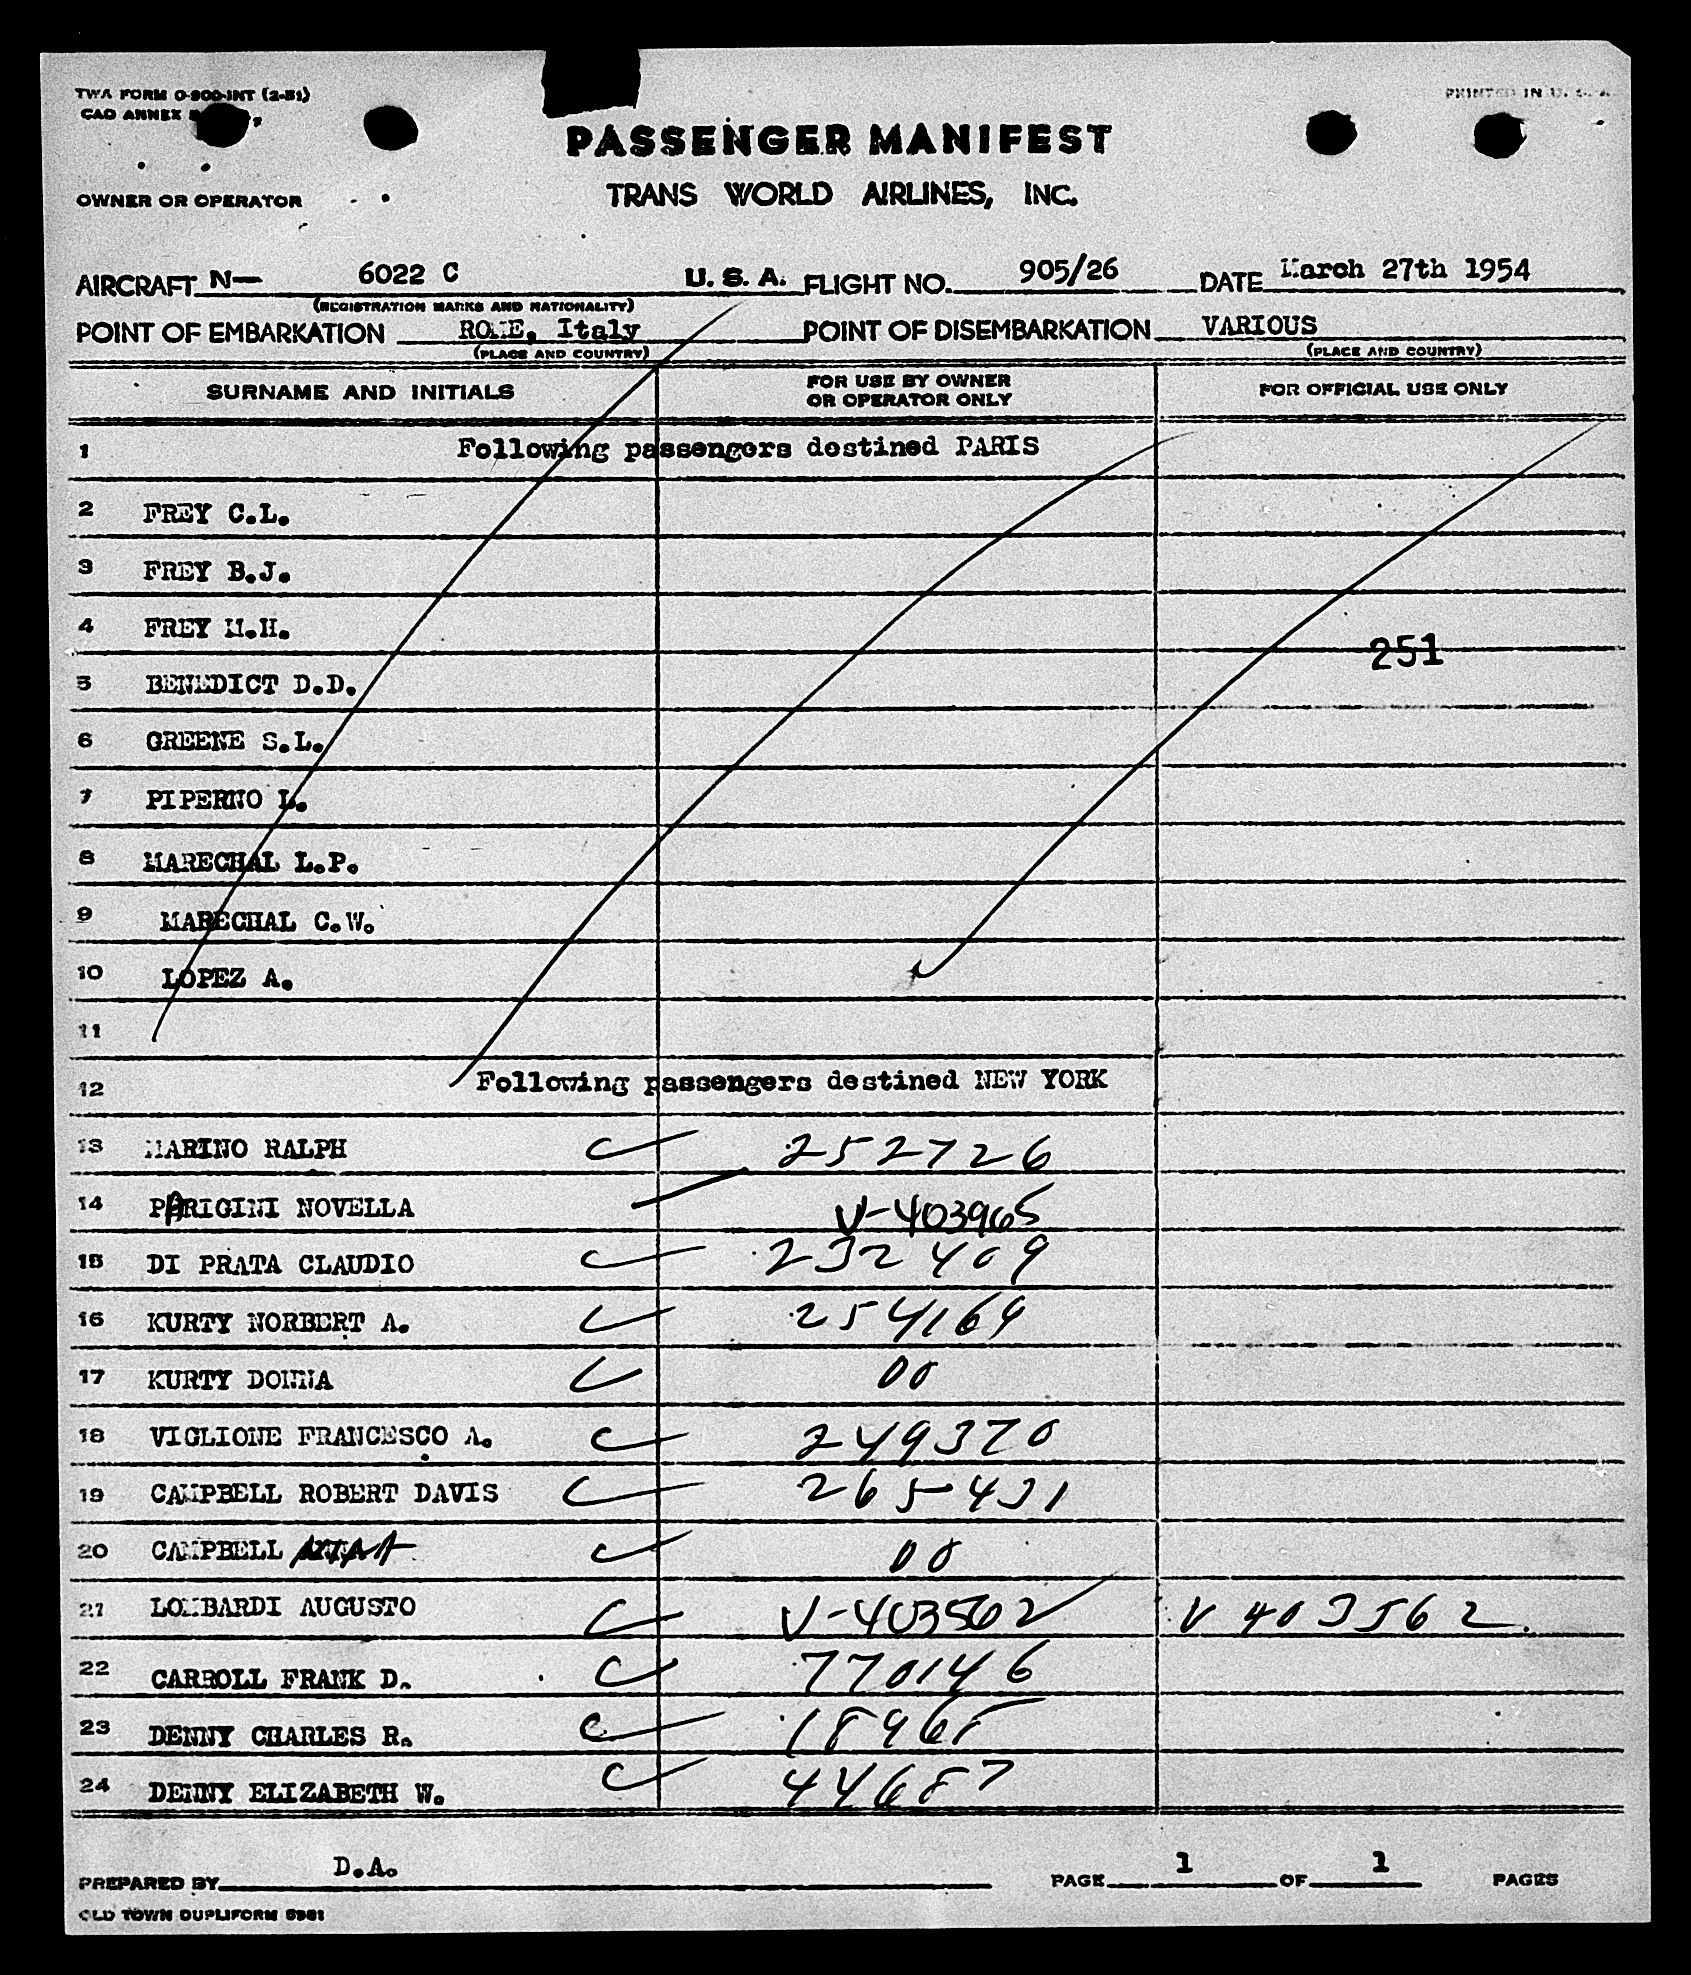 TWA FORM O-900-INT (2-51)
PRINTED IN U. S. A.
CAO ANNEX
PASSENGER MANIFEST
OWNER OR OPERATOR
TRANS WORLD AIRLINES, INC.
AIRCRAFT N— 6022 C U. S. A. FLIGHT NO. 905/26 DATE March 27th 1954
(REGISTRATION MARKS AND NATIONALITY)
POINT OF EMBARKATION ROME, Italy POINT OF DISEMBARKATION VARIOUS
(PLACE AND COUNTRY) (PLACE AND COUNTRY)
SURNAME AND INITIALS FOR USE BY OWNER OR OPERATOR ONLY FOR OFFICIAL USE ONLY
1 Following passengers destined PARIS
2 FREY C.L.
3 FREY B.J.
4 FREY M.H.
251
5 BENEDICT D.D.
6 GREENE S.L.
7 PIPERNO L.
8 MARECHAL L.P.
9 MARECHAL C.W.
10 LOPEZ A.
11
12 Following passengers destined NEW YORK
13 MARINO RALPH 252726
14 PARIGINI NOVELLA V-403965
15 DI PRATA CLAUDIO 232409
16 KURTY NORBERT A. 254169
17 KURTY DONNA 00
18 VIGLIONE FRANCESCO A. 249370
19 CAMPBELL ROBERT DAVIS 265431
20 CAMPBELL 00
21 LOMBARDI AUGUSTO V-403562 V 403562
22 CARROLL FRANK D. 770146
23 DENNY CHARLES R. 18968
24 DENNY ELIZABETH W. 44687
PREPARED BY D.A. PAGE 1 OF 1 PAGES
OLD TOWN DUPLIFORM 5981